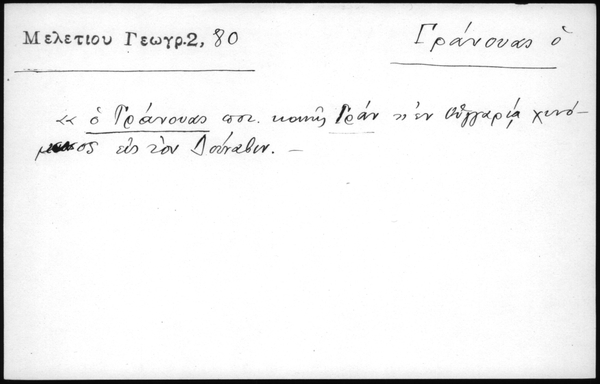 Μελετιου Γεωγρ.2, 80
Γράνουας ὁ
«« ὁ Γράνουας ποτ. κοινῆς Γράν »» ἐν Οὑγγαρίᾳ χυνό-
μενος εἰς τὸν Δούναβιν. —